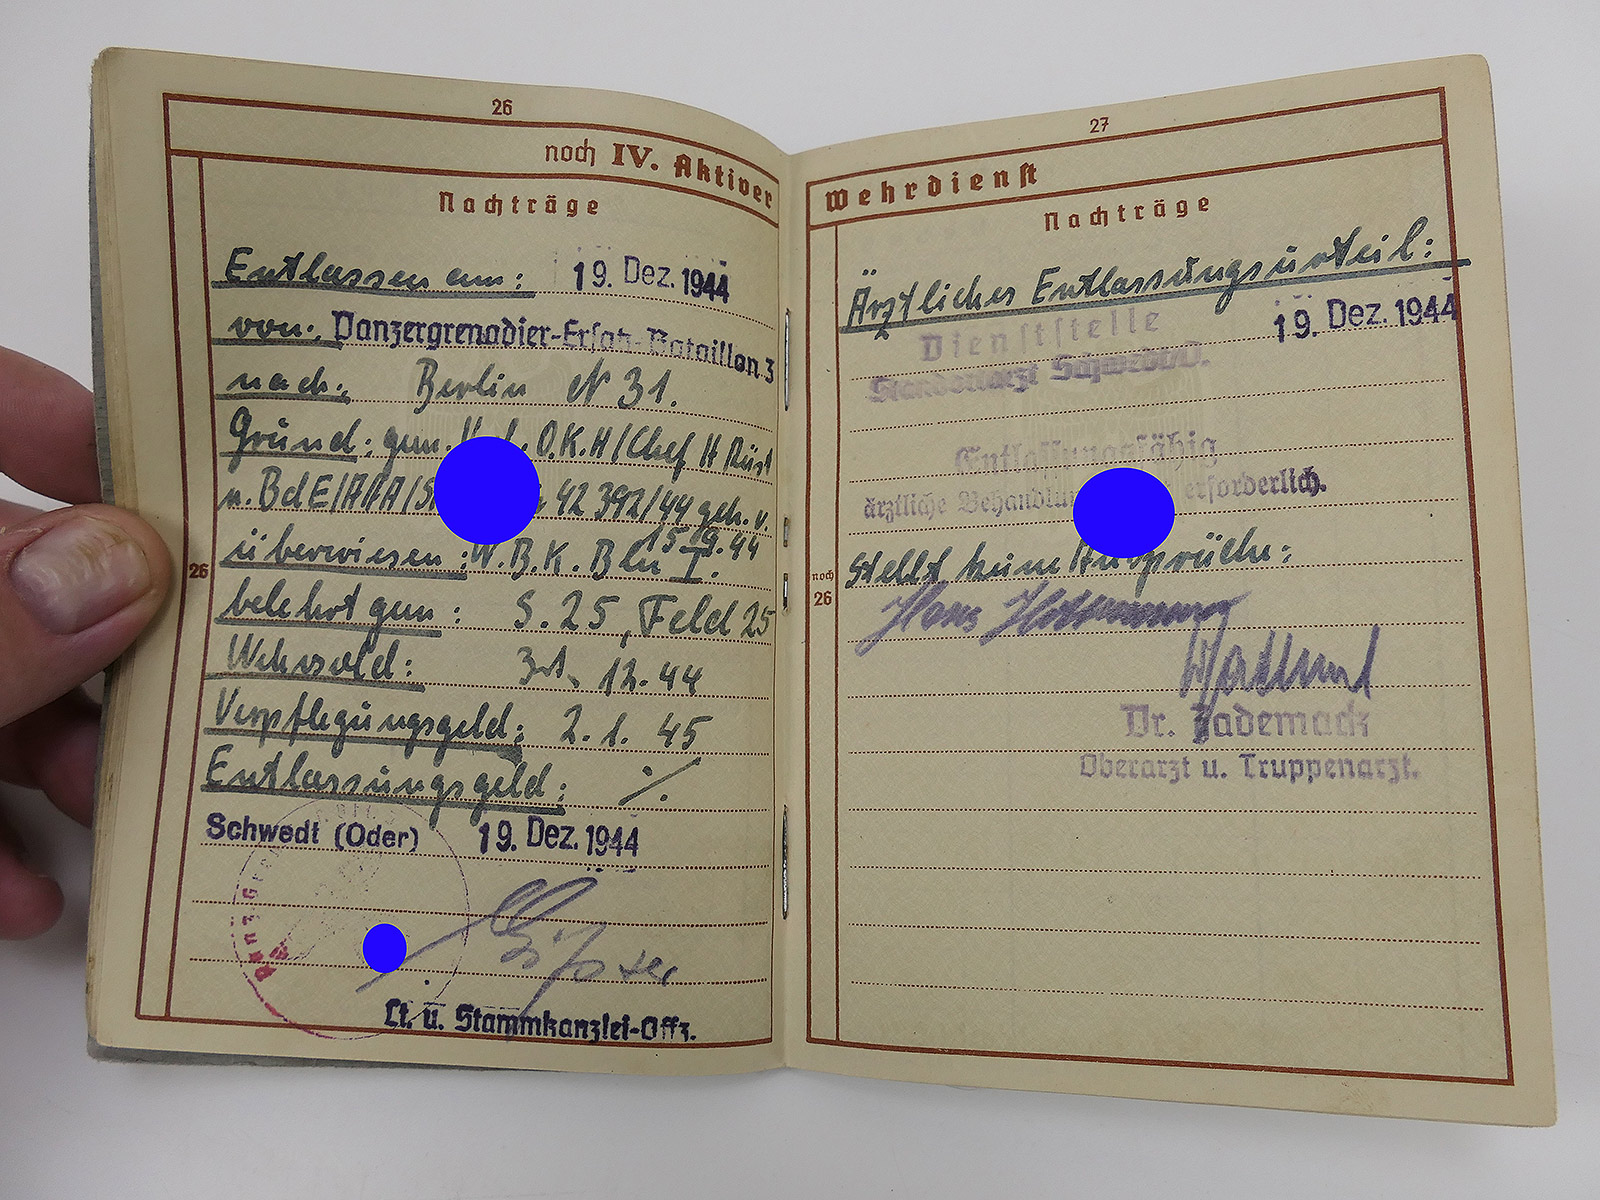 26
noch IV. Aktiver
Nachträge
Entlassen am: 19. Dez. 1944
von: Panzergrenadier-Ersatz-Bataillon 3
nach: Berlin N 31.
Grund: gem. O.K.H/Chef H Rüst
u. BdE/AHA/ 42 392/44 geh. v.
15.
44
überwiesen: W.B.K. Bln I.
26
belehrt gem: S. 25, Feld 25
Wehrsold: 12. 44
Verpflegungsgeld: 2. 1. 45
Entlassungsgeld: ./.
Schwedt (Oder) 19. Dez. 1944
Lt. u. Stammkanzlei-Offz.
27
Wehrdienst
Nachträge
Ärztliches Entlassungsurteil:
Dienststelle 19. Dez. 1944
Standortarzt Schwedt/O.
Entlassungsfähig
ärztliche Behandlung erforderlich.
noch
26
Stellt keine Ansprüche:
Hans
Dr. Bademack
Oberarzt u. Truppenarzt.